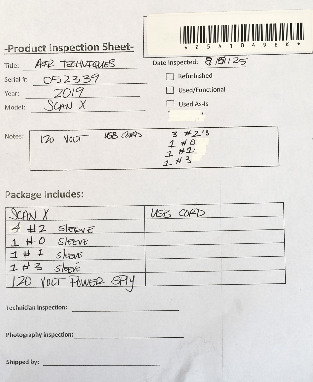 * 2 5 4 1 0 4 9 8 6 *
-Product Inspection Sheet-
Title: AIR TECHNIQUES
Date Inspected: 8/8/25
Serial #: OF52339
Refurbished
Year: 2019
Used/Functional
Model: SCAN X
Used As-Is
Notes: 120 VOLT USB CORD 3 #2's
1 #0
1 #1
1 #3
Package Includes:
SCAN X USB CORD
4 #2 SLEEVE
1 #0 SLEEVE
1 #1 SLEEVE
1 #3 SLEEVE
120 VOLT POWER SPLY
Technician Inspection:
Photography Inspection:
Shipped by: